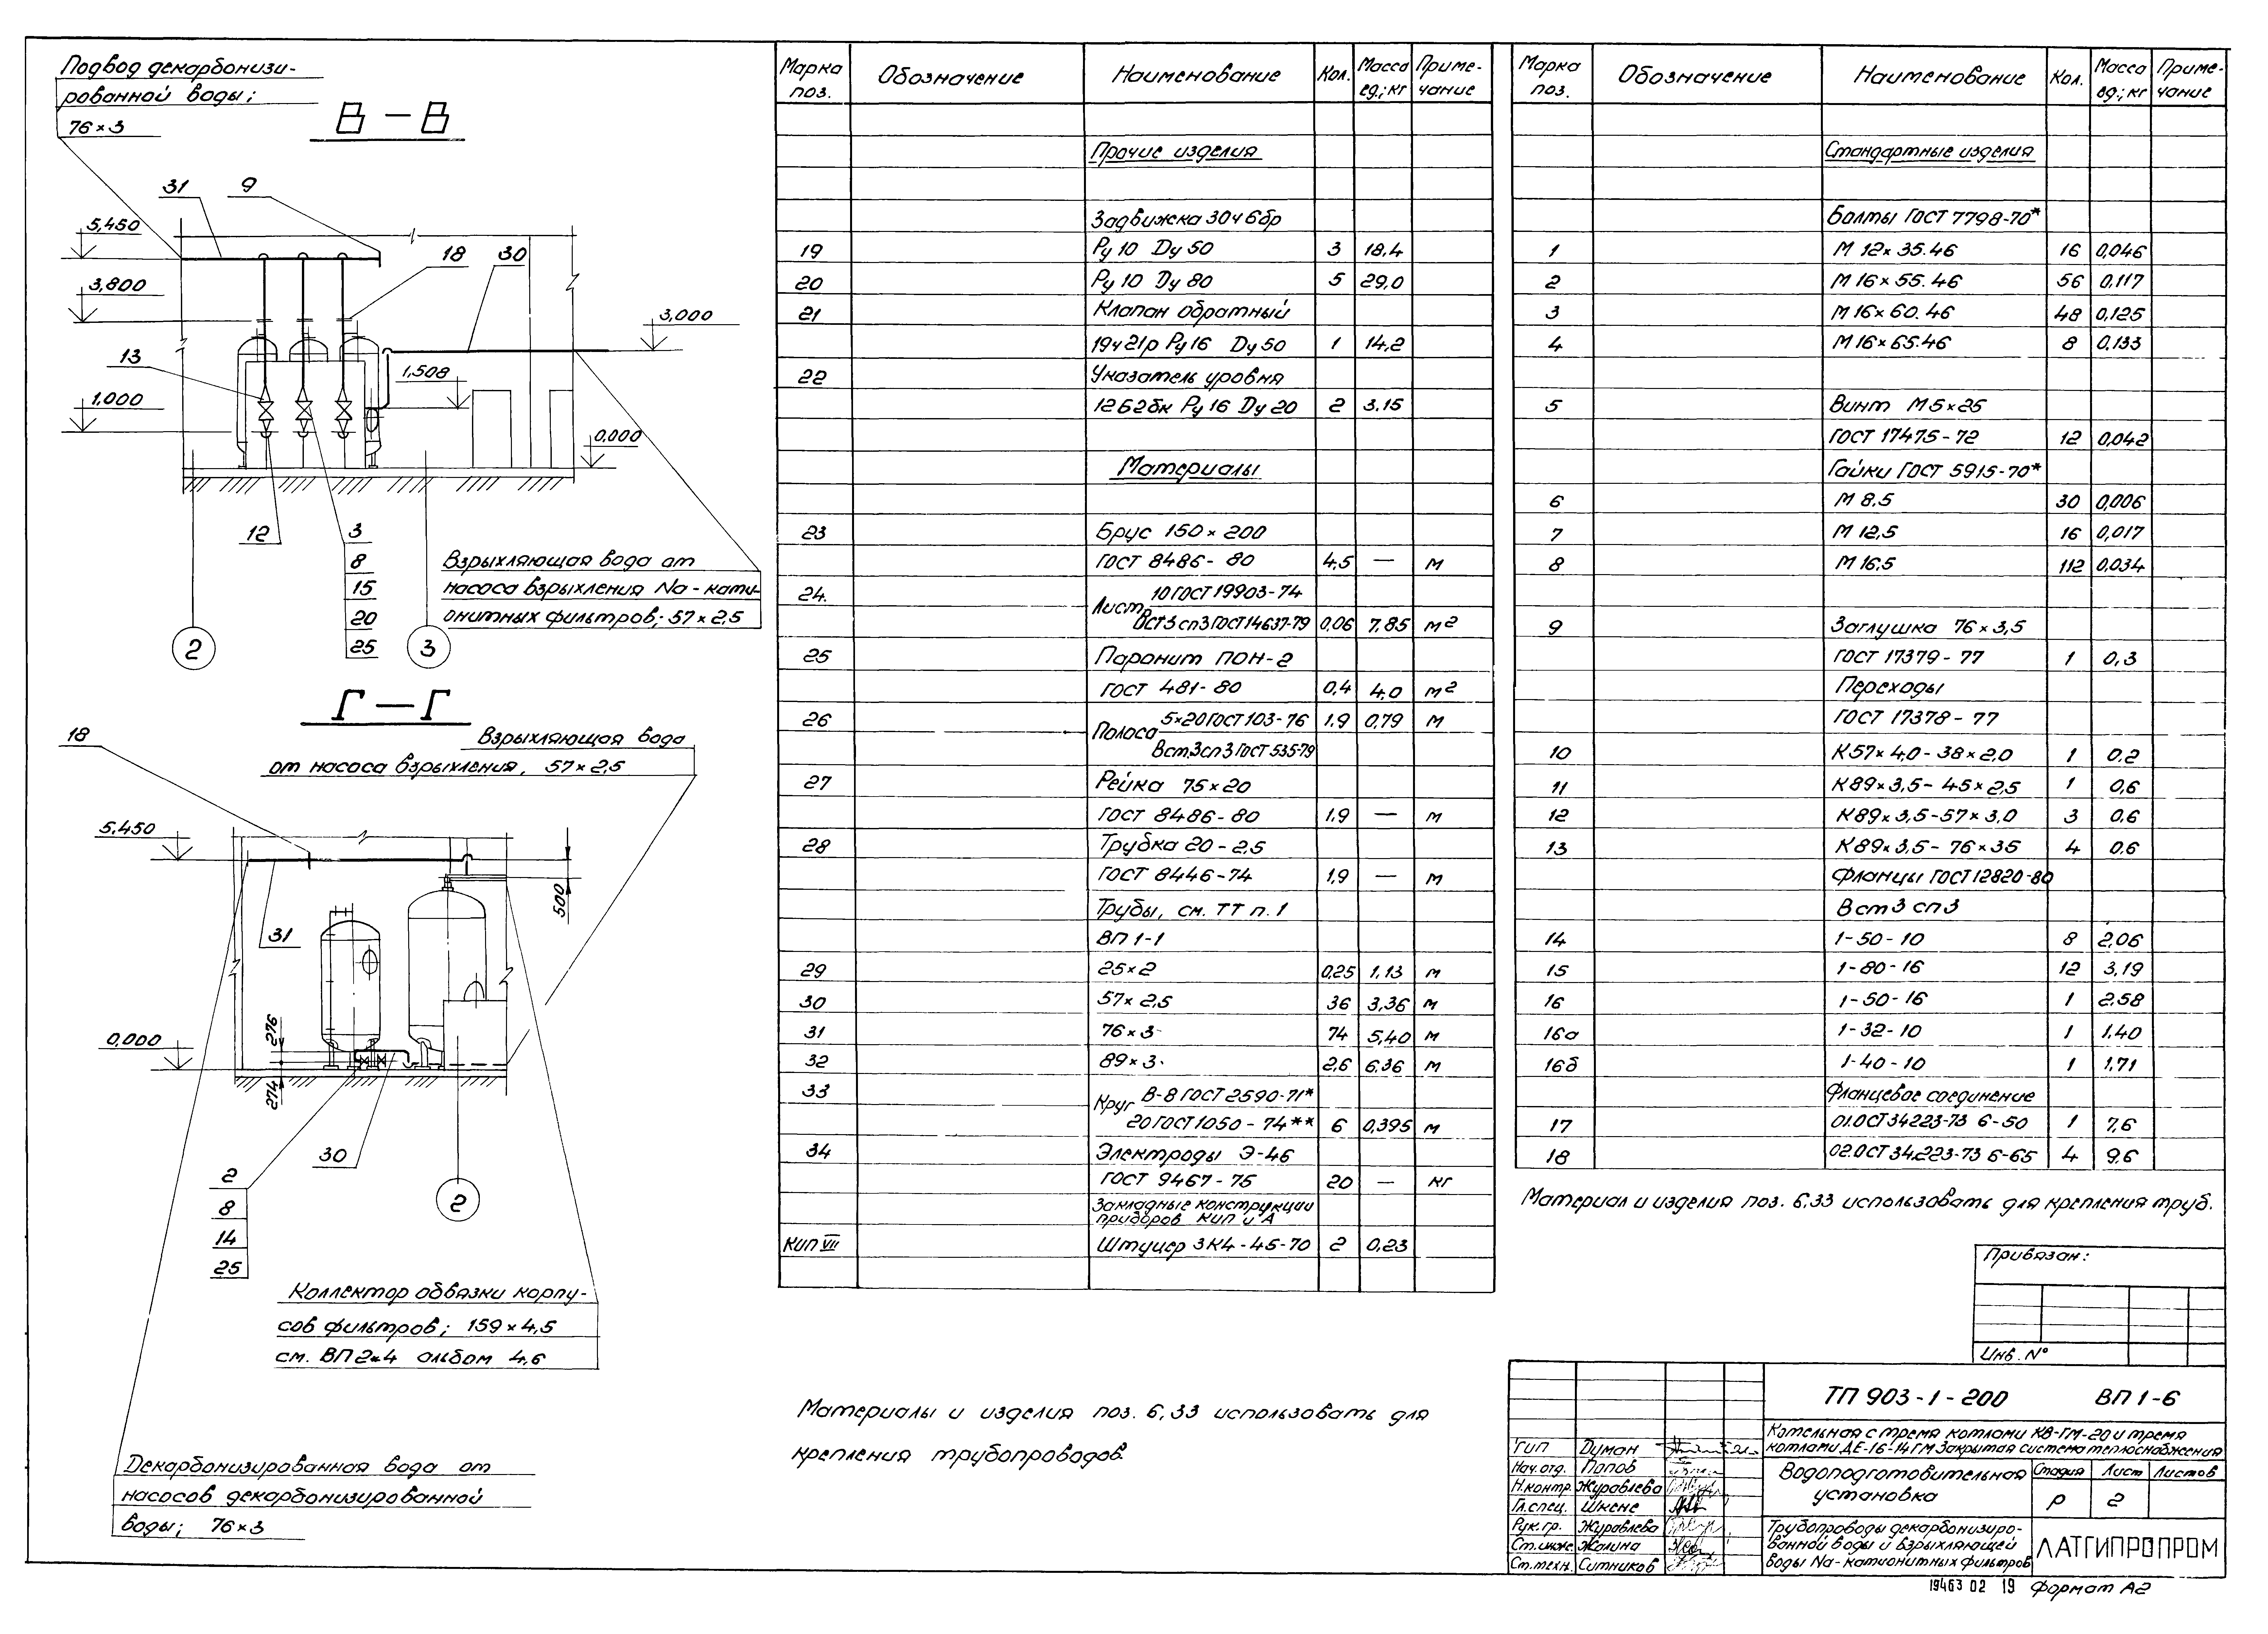 Подвод декарбонизи-
рованной воды;
76×3
В – В
31
9
5,450
3,800
18
30
3,000
13
1,508
1,000
0,000
12
3
8
15
20
25
Взрыхляющая вода от
насоса взрыхления Na-кати-
онитных фильтров; 57×2,5
2
3
Г – Г
Взрыхляющая вода
от насоса взрыхления, 57×2,5
18
5,450
500
31
0,000
276
274
30
2
8
14
25
2
Коллектор обвязки корпу-
сов фильтров; 159×4,5
см. ВП2-4 альбом 4,6
Декарбонизированная вода от
насосов декарбонизированной
воды; 76×3
Марка поз. Обозначение Наименование Кол. Масса ед.; кг Приме-чание
Прочие изделия
Задвижка 30ч6бр
19 Ру 10 Ду 50 3 18,4
20 Ру 10 Ду 80 5 29,0
21 Клапан обратный
19ч21р Ру16 Ду 50 1 14,2
22 Указатель уровня
12б2бк Ру 16 Ду 20 2 3,15
Материалы
23 Брус 150×200
ГОСТ 8486-80 4,5 — м
24. Лист 10 ГОСТ 19903-74
Вст3сп3 ГОСТ 14637-79 0,06 7,85 м2
25 Паронит ПОН-2
ГОСТ 481-80 0,4 4,0 м2
26 Полоса 5×20 ГОСТ 103-76 1,9 0,79 м
Вст.3сп3 ГОСТ 535-79
27 Рейка 75×20
ГОСТ 8486-80 1,9 — м
28 Трубка 20-2,5
ГОСТ 8446-74 1,9 — м
Трубы, см. ТТ п. 1
ВП 1-1
29 25×2 0,25 1,13 м
30 57×2,5 36 3,36 м
31 76×3 74 5,40 м
32 89×3 2,6 6,36 м
33 Круг В-8 ГОСТ 2590-71*
20 ГОСТ 1050-74** 6 0,395 м
34 Электроды Э-46
ГОСТ 9467-75 20 — кг
Закладные конструкции
приборов КИП и А
КИП VII Штуцер ЗК4-45-70 2 0,23
Материалы и изделия поз. 6,33 использовать для
крепления трубопроводов.
Марка поз. Обозначение Наименование Кол. Масса ед.; кг Приме-чание
Стандартные изделия
Болты ГОСТ 7798-70*
1 М 12×35.46 16 0,046
2 М16×55.46 56 0,117
3 М16×60.46 48 0,125
4 М16×65.46 8 0,133
5 Винт М5×25
ГОСТ 17475-72 12 0,042
Гайки ГОСТ 5915-70*
6 М 8.5 30 0,006
7 М 12,5 16 0,017
8 М 16,5 112 0,034
9 Заглушка 76×3,5
ГОСТ 17379-77 1 0,3
Переходы
ГОСТ 17378-77
10 К57×4,0-38×2,0 1 0,2
11 К89×3,5-45×2,5 1 0,6
12 К89×3,5-57×3,0 3 0,6
13 К89×3,5-76×35 4 0,6
Фланцы ГОСТ 12820-80
Вст3 сп3
14 1-50-10 8 2,06
15 1-80-16 12 3,19
16 1-50-16 1 2.58
16а 1-32-10 1 1,40
16б 1-40-10 1 1,71
Фланцевое соединение
17 01.ОСТ34223-73 6-50 1 7,6
18 02.ОСТ 34.223-73 6-65 4 9,6
Материал и изделия поз. 6,33 использовать для крепления труб.
Привязан:
Инв. N°
ТП 903-1-200 ВП 1-6
Котельная с тремя котлами КВ-ГМ-20 и тремя
котлами ДЕ-16-14ГМ Закрытая система теплоснабжения
ГИП Думан
Нач.отд. Попов
Н.контр. Журавлева
Гл.спец. Шкене
Рук.гр. Журавлева
Ст.инж. Жолина
Ст.техн. Ситников
Водоподготовительная
установка
Стадия Лист Листов
Р 2
Трубопроводы декарбонизиро-
ванной воды и взрыхляющей
воды Na-катионитных фильтров
ЛАТГИПРОПРОМ
19463 02 19 Формат А2